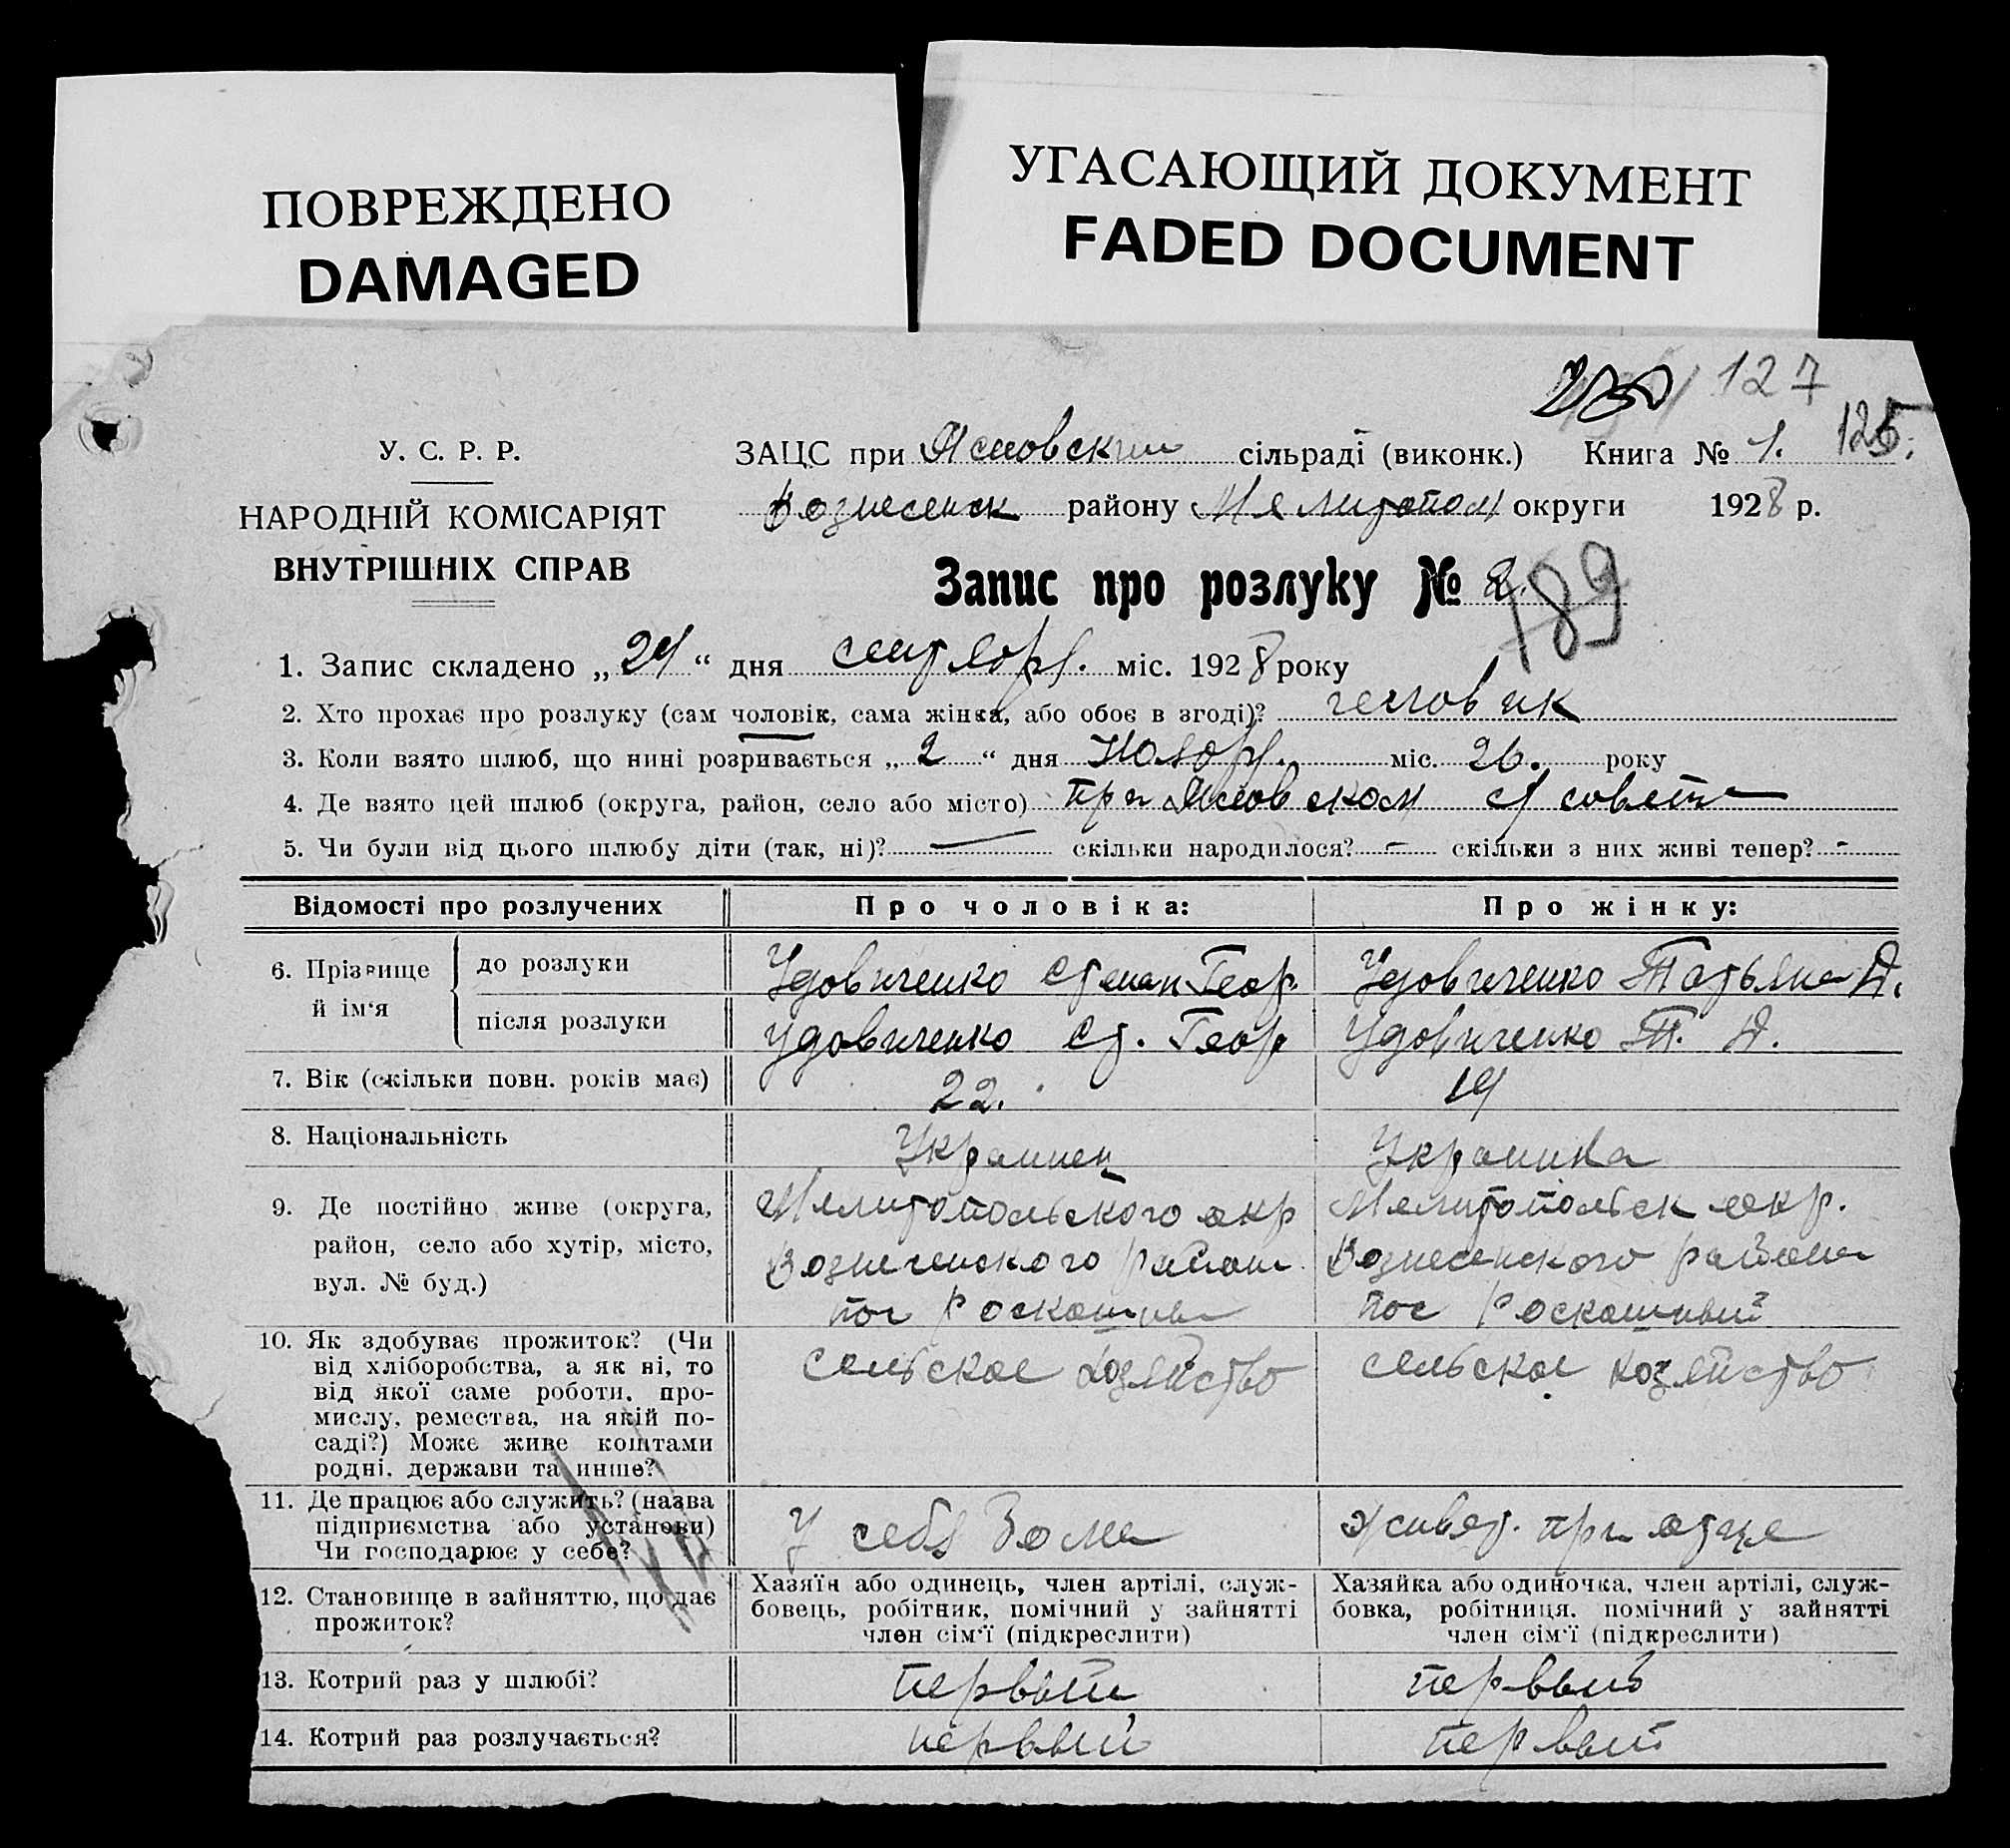 ПОВРЕЖДЕНО
DAMAGED
УГАСАЮЩИЙ ДОКУМЕНТ
FADED DOCUMENT
127
125
У. С. Р. Р.
НАРОДНІЙ КОМІСАРІЯТ
ВНУТРІШНІХ СПРАВ
ЗАЦС при Ясновским сільраді (виконк.) Книга № 1.
Вознесенск району Мелитопол округи 1928 р.
Запис про розлуку № 2.
189
1. Запис складено „24“ дня сентября міс. 1928 року
2. Хто прохає про розлуку (сам чоловік, сама жінка, або обоє в згоді)? человик
3. Коли взято шлюб, що нині розривається „2“ дня Ноября міс. 26. року
4. Де взято цей шлюб (округа, район, село або місто) при Ясновском с/совете
5. Чи були від цього шлюбу діти (так, ні)? — скільки народилося? - скільки з них живі тепер? -
Відомості про розлучених Про чоловіка: Про жінку:
6. Прізвище й ім‘я
до розлуки Удовиченко Степан Геор. Удовиченко Татьяна Д.
після розлуки Удовиченко Ст. Геор Удовиченко Т. Д.
7. Вік (скільки повн. років має) 22. 19
8. Національність Украинец Украинка
9. Де постійно живе (округа, Мелитопольского окр Мелитопольск окр.
район, село або хутір, місто, Вознесенского района Вознесенского района
вул. № буд.) пос Роскошный пос Роскошный
10. Як здобуває прожиток? (Чи сельское хозяйство сельское хозяйство
від хліборобства, а як ні, то
від якої саме роботи, про-
мислу, ремества, на якій по-
саді?) Може живе коштами
родні, держави та инше?
11. Де працює або служить? (назва
підприємства або установи) У себя дома живет при отце
Чи господарює у себе?
12. Становище в зайняттю, що дає
прожиток?
Хазяїн або одинець, член артілі, служ-
бовець, робітник, помічний у зайнятті
член сім‘ї (підкреслити)
Хазяйка або одиночка, член артілі, служ-
бовка, робітниця, помічний у зайнятті
член сім‘ї (підкреслити)
13. Котрий раз у шлюбі? первый первый
14. Котрий раз розлучається? первый первый